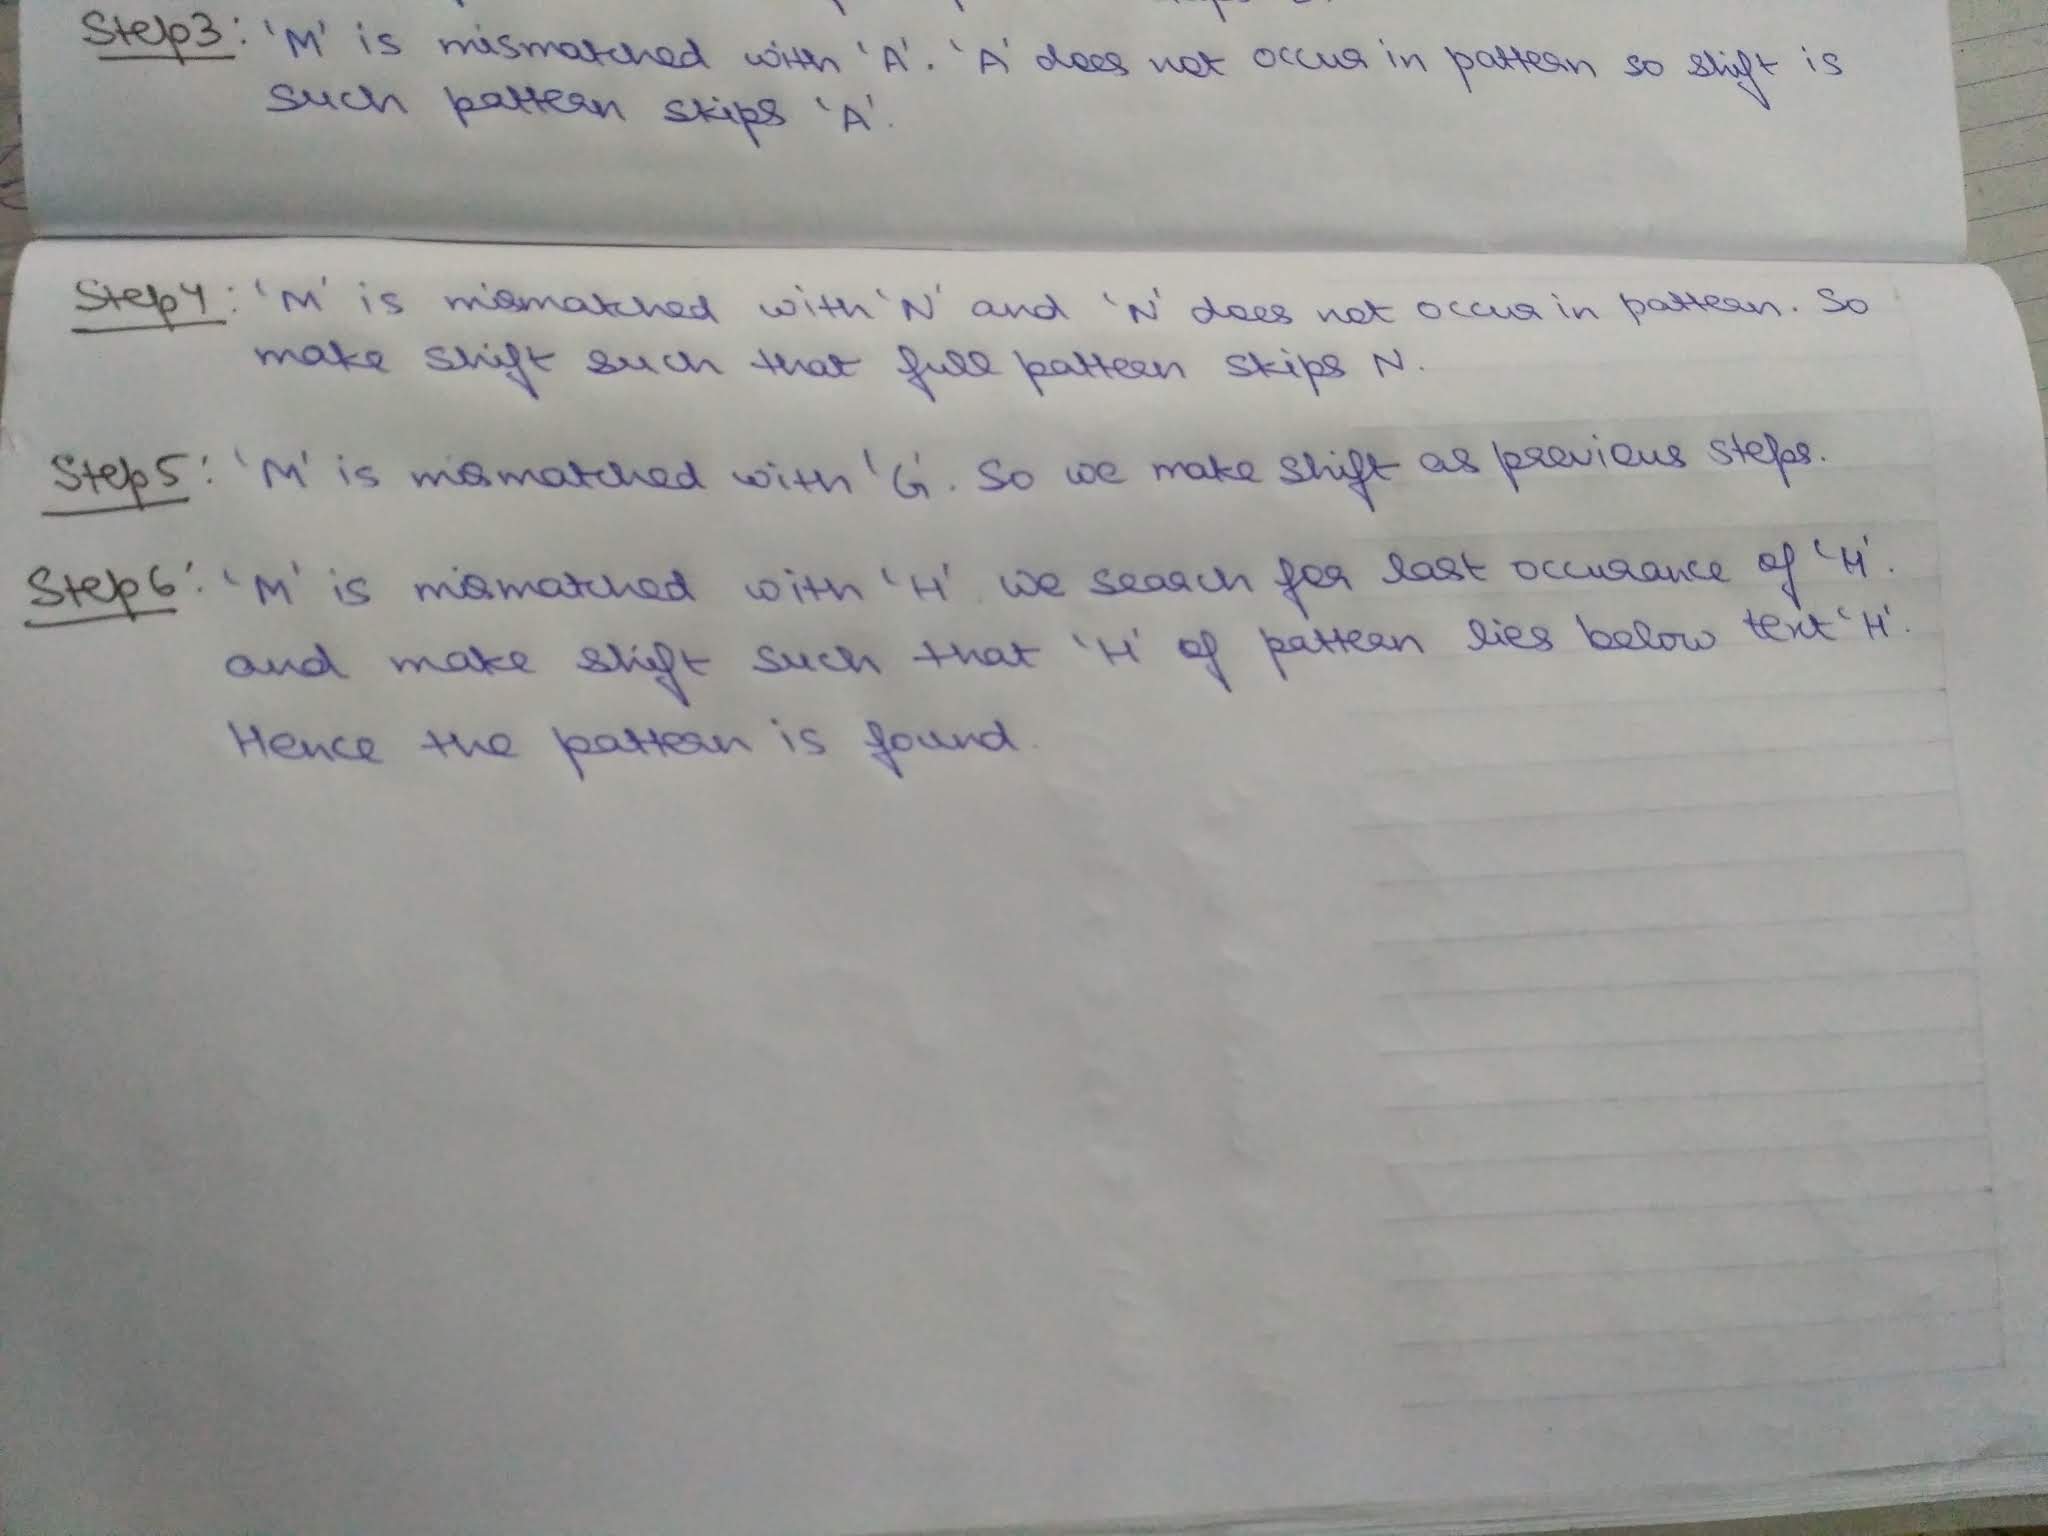 Step3: 'M' is mismatched with 'A'. 'A' does not occur in pattern so shift is
such pattern skips 'A'.
Step4: 'M' is mismatched with 'N' and 'N' does not occur in pattern. So
make shift such that full pattern skips N.
Step5: 'M' is mismatched with 'G'. So we make shift as previous steps.
Step6: 'M' is mismatched with 'H'. we search for last occurance of 'H'.
and make shift such that 'H' of pattern lies below text 'H'.
Hence the pattern is found.